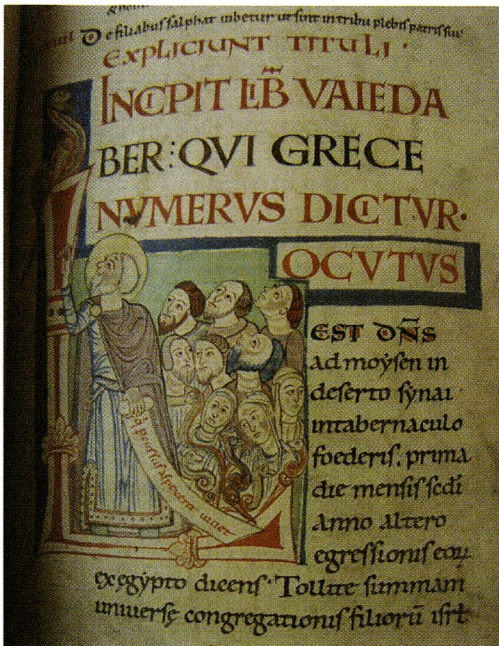 De filiabus salphat iubetur ut sint in tribu plebis patris sui
EXPLICIUNT TITULI ·
INCIPIT LIB̄ VAIEDA
BER: QVI GRECE
NVMERVS DICITVR·
LOCVTVS
EST DN̄S
ad moysen in
deserto synai
intabernaculo
foederis, prima
die mensis sedi
Anno altero
egressionis eoꝝ
ex egypto dicens· Tollite summam
universę congregationis filiorū isrł